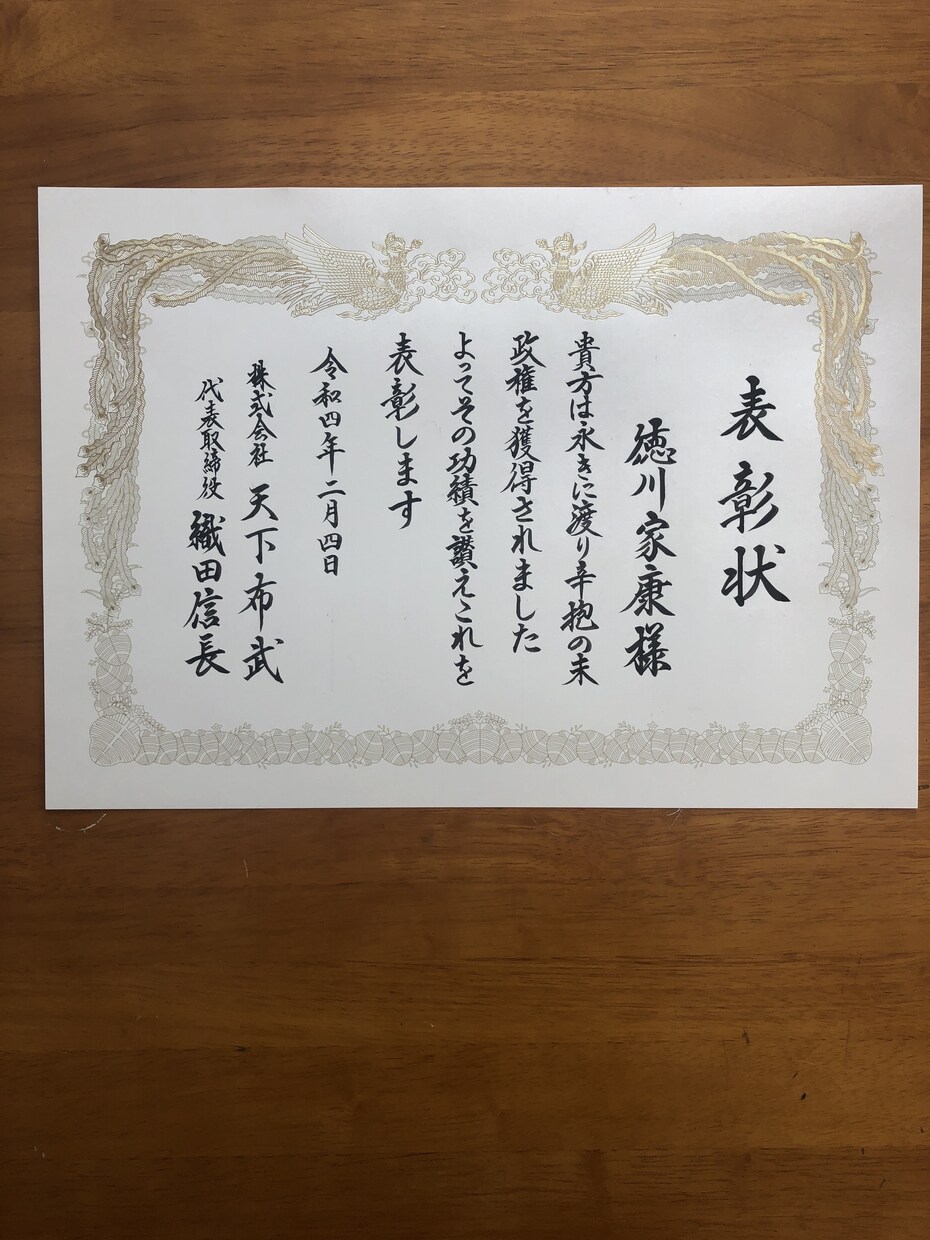 表彰状
徳川家康様
貴方は永きに渡り辛抱の末
政権を獲得されました
よってその功績を讃えこれを
表彰します
令和四年二月四日
株式会社 天下布武
代表取締役 織田信長